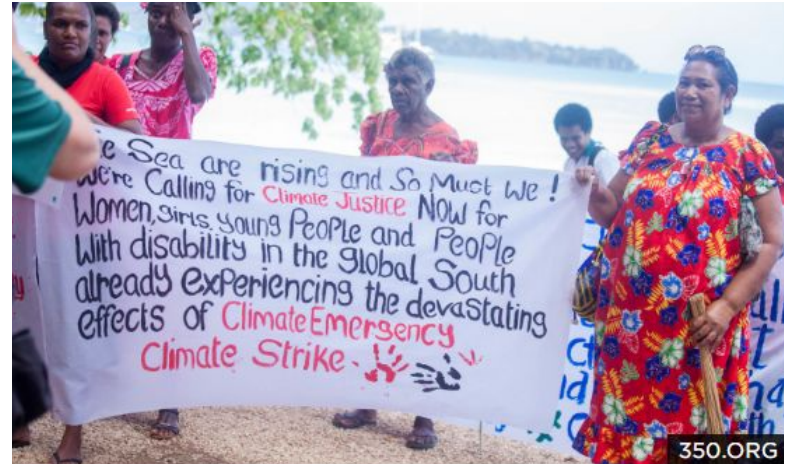 e Sea are rising and So Must We !
We're Calling for Climate Justice NOW for
Women, girls, young People and People
With disability in the global South
already experiencing the devastating
effects of Climate Emergency
Climate Strike
350.ORG